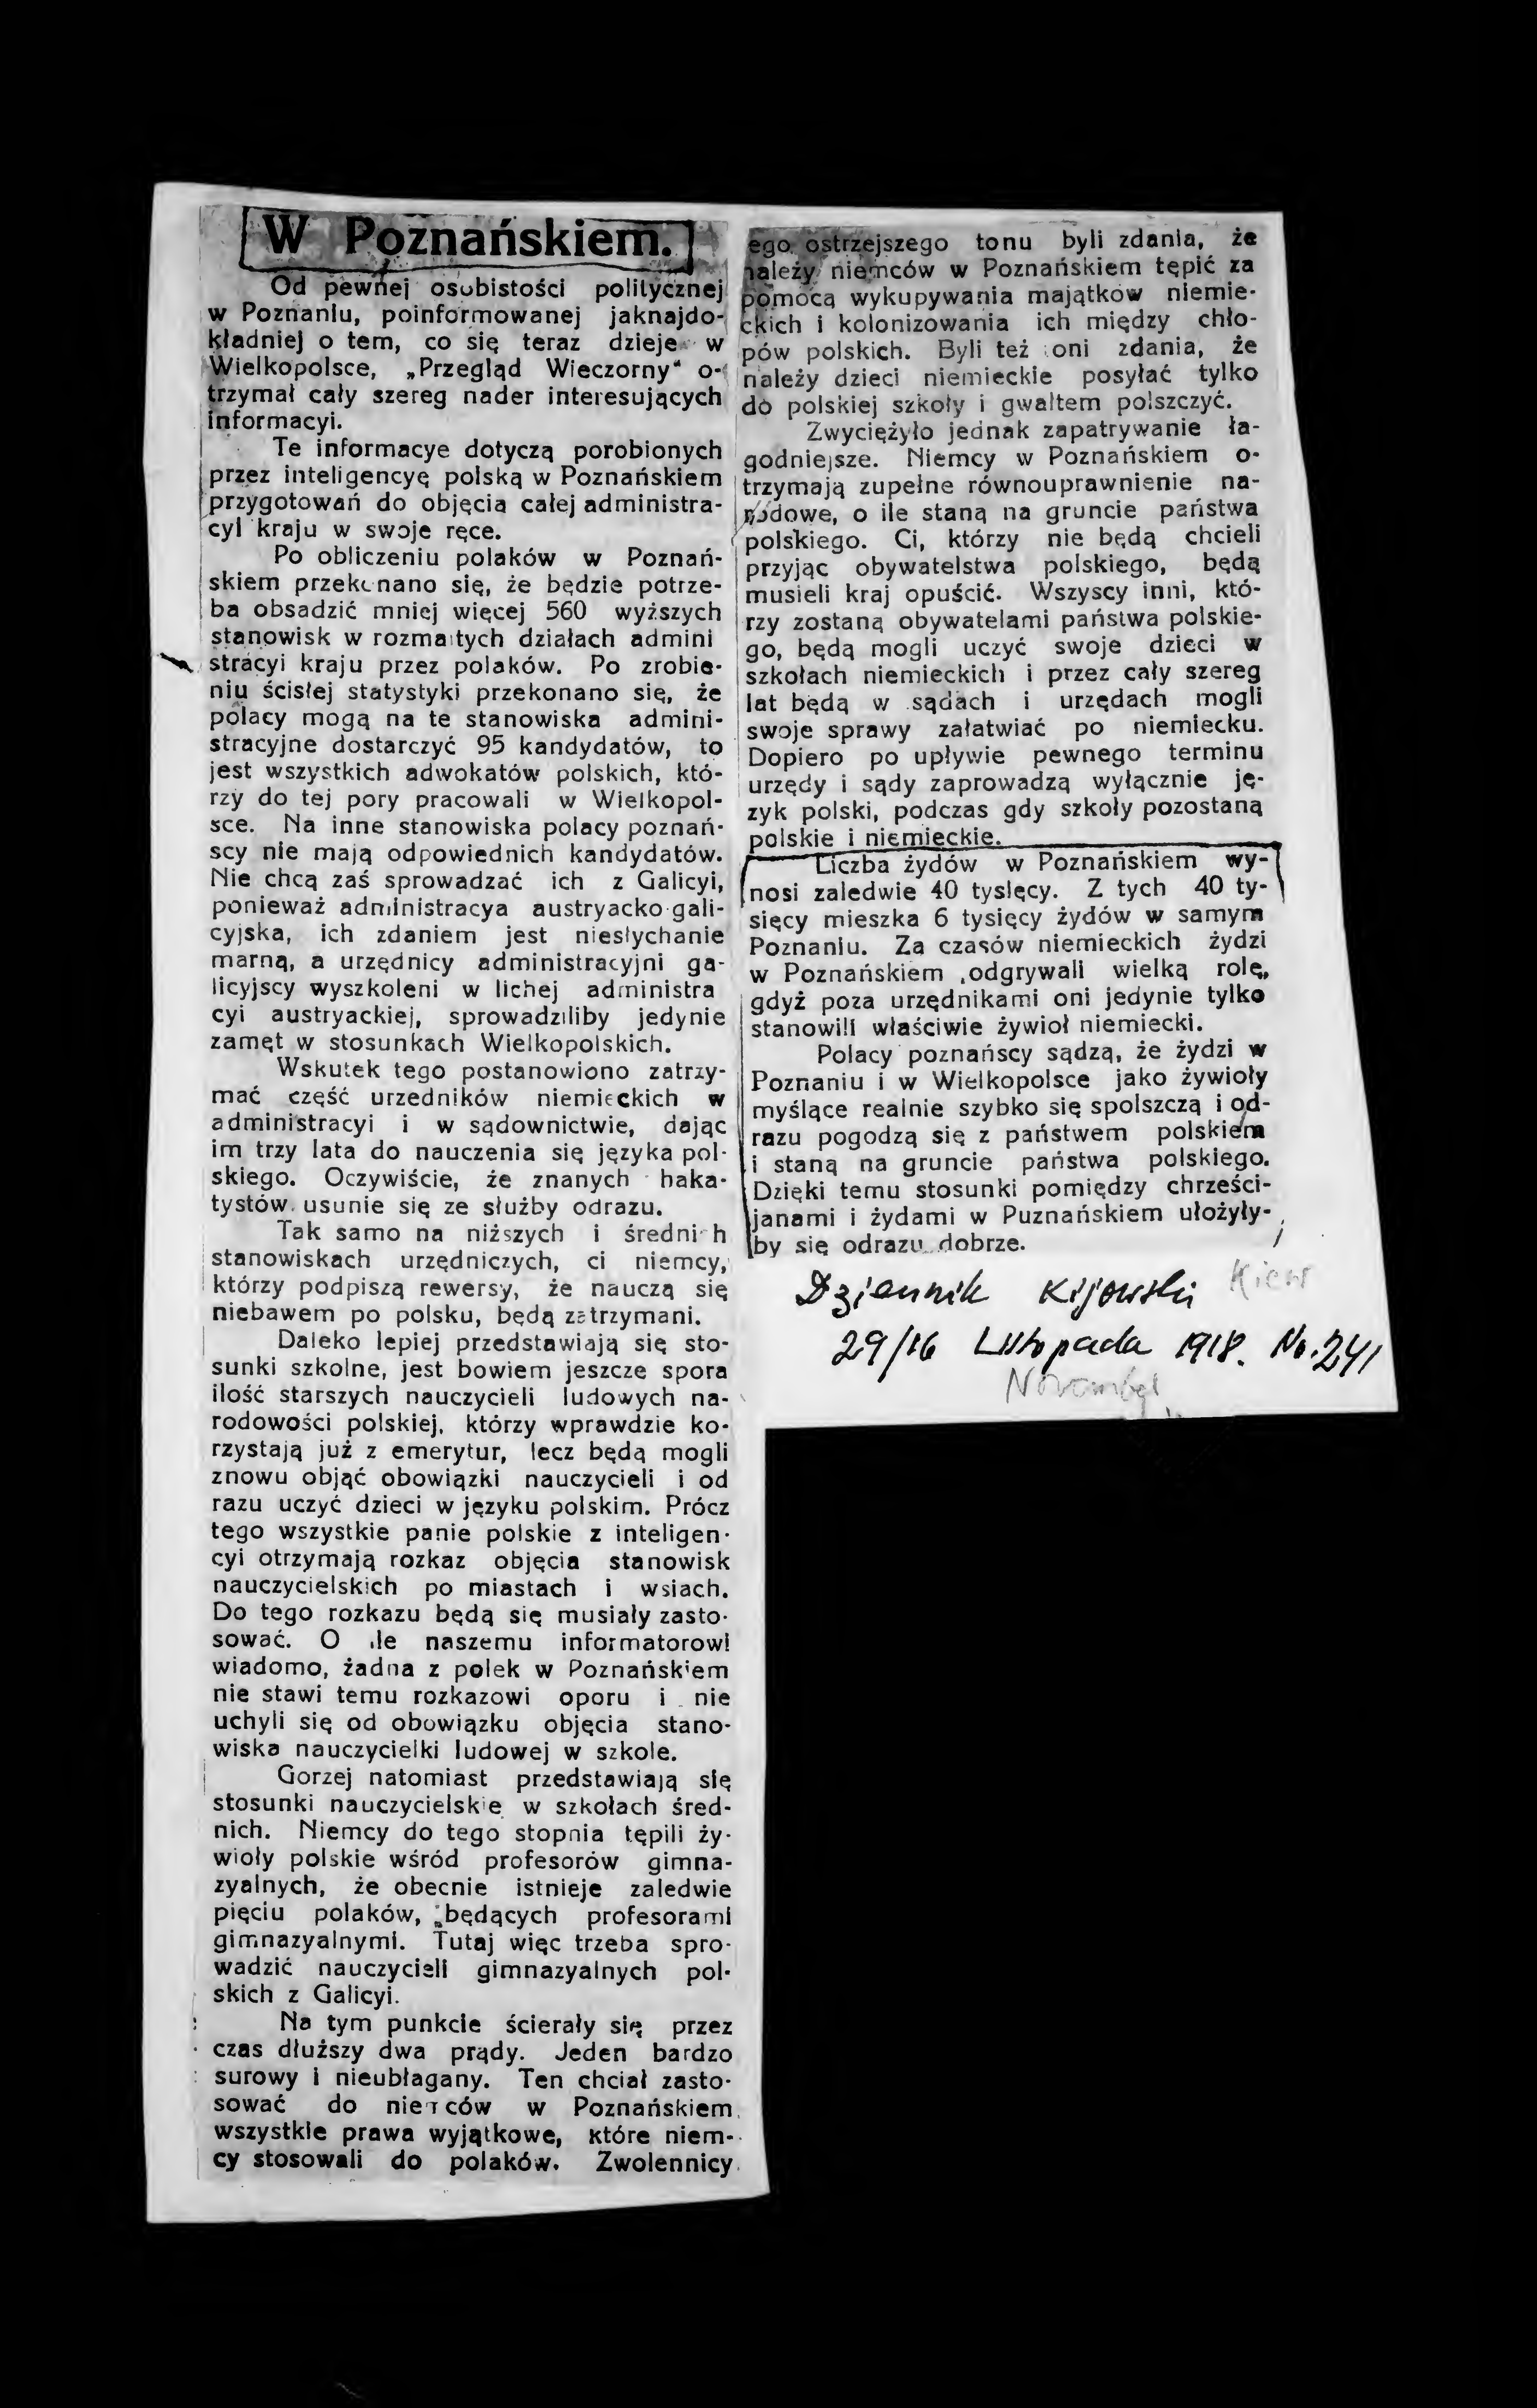 W Poznańskiem.
Od pewnej osobistości politycznej
w Poznaniu, poinformowanej jaknajdo-
kładniej o tem, co się teraz dzieje w
Wielkopolsce, „Przegląd Wieczorny“ o-
trzymał cały szereg nader interesujących
informacyi.
Te informacye dotyczą porobionych
przez inteligencyę polską w Poznańskiem
przygotowań do objęcia całej administra-
cyi kraju w swoje ręce.
Po obliczeniu polaków w Poznań-
skiem przekonano się, że będzie potrze-
ba obsadzić mniej więcej 560 wyższych
stanowisk w rozmaitych działach admini
stracyi kraju przez polaków. Po zrobie-
niu ścisłej statystyki przekonano się, że
polacy mogą na te stanowiska admini-
stracyjne dostarczyć 95 kandydatów, to
jest wszystkich adwokatów polskich, któ-
rzy do tej pory pracowali w Wielkopol-
sce. Na inne stanowiska polacy poznań-
scy nie mają odpowiednich kandydatów.
Nie chcą zaś sprowadzać ich z Galicyi,
ponieważ administracya austryacko-gali-
cyjska, ich zdaniem jest niesłychanie
marną, a urzędnicy administracyjni ga-
licyjscy wyszkoleni w lichej administra
cyi austryackiej, sprowadziliby jedynie
zamęt w stosunkach Wielkopolskich.
Wskutek tego postanowiono zatrzy-
mać część urzedników niemieckich w
administracyi i w sądownictwie, dając
im trzy lata do nauczenia się języka pol-
skiego. Oczywiście, że znanych haka-
tystów usunie się ze służby odrazu.
Tak samo na niższych i średnich
stanowiskach urzędniczych, ci niemcy,
którzy podpiszą rewersy, że nauczą się
niebawem po polsku, będą zatrzymani.
Daleko lepiej przedstawiają się sto-
sunki szkolne, jest bowiem jeszcze spora
ilość starszych nauczycieli ludowych na-
rodowości polskiej, którzy wprawdzie ko-
rzystają już z emerytur, lecz będą mogli
znowu objąć obowiązki nauczycieli i od
razu uczyć dzieci w języku polskim. Prócz
tego wszystkie panie polskie z inteligen-
cyi otrzymają rozkaz objęcia stanowisk
nauczycielskich po miastach i wsiach.
Do tego rozkazu będą się musiały zasto-
sować. O ile naszemu informatorowi
wiadomo, żadna z polek w Poznańskiem
nie stawi temu rozkazowi oporu i nie
uchyli się od obowiązku objęcia stano-
wiska nauczycielki ludowej w szkole.
Gorzej natomiast przedstawiają się
stosunki nauczycielskie w szkołach śred-
nich. Niemcy do tego stopnia tępili ży-
wioły polskie wśród profesorów gimna-
zyalnych, że obecnie istnieje zaledwie
pięciu polaków, będących profesorami
gimnazyalnymi. Tutaj więc trzeba spro-
wadzić nauczycieli gimnazyalnych pol-
skich z Galicyi.
Na tym punkcie ścierały się przez
czas dłuższy dwa prądy. Jeden bardzo
surowy i nieubłagany. Ten chciał zasto-
sować do niemców w Poznańskiem
wszystkie prawa wyjątkowe, które niem-
cy stosowali do polaków. Zwolennicy
ego ostrzejszego tonu byli zdania, że
należy niemców w Poznańskiem tępić za
pomocą wykupywania majątków niemie-
ckich i kolonizowania ich między chło-
pów polskich. Byli też oni zdania, że
należy dzieci niemieckie posyłać tylko
do polskiej szkoły i gwałtem polszczyć.
Zwyciężyło jednak zapatrywanie ła-
godniejsze. Niemcy w Poznańskiem o-
trzymają zupełne równouprawnienie na-
rodowe, o ile staną na gruncie państwa
polskiego. Ci, którzy nie będą chcieli
przyjąc obywatelstwa polskiego, będą
musieli kraj opuścić. Wszyscy inni, któ-
rzy zostaną obywatelami państwa polskie-
go, będą mogli uczyć swoje dzieci w
szkołach niemieckich i przez cały szereg
lat będą w sądach i urzędach mogli
swoje sprawy załatwiać po niemiecku.
Dopiero po upływie pewnego terminu
urzędy i sądy zaprowadzą wyłącznie ję-
zyk polski, podczas gdy szkoły pozostaną
polskie i niemieckie.
Liczba żydów w Poznańskiem wy-
nosi zaledwie 40 tysięcy. Z tych 40 ty-
sięcy mieszka 6 tysięcy żydów w samym
Poznaniu. Za czasów niemieckich żydzi
w Poznańskiem odgrywali wielką rolę,
gdyż poza urzędnikami oni jedynie tylko
stanowili właściwie żywioł niemiecki.
Polacy poznańscy sądzą, że żydzi w
Poznaniu i w Wielkopolsce jako żywioły
myślące realnie szybko się spolszczą i od-
razu pogodzą się z państwem polskiem
i staną na gruncie państwa polskiego.
Dzięki temu stosunki pomiędzy chrześci-
janami i żydami w Puznańskiem ułożyły-
by się odrazu dobrze.
Dziennik Kijowski Kiew
29/16 Listopada 1918. No. 241
November